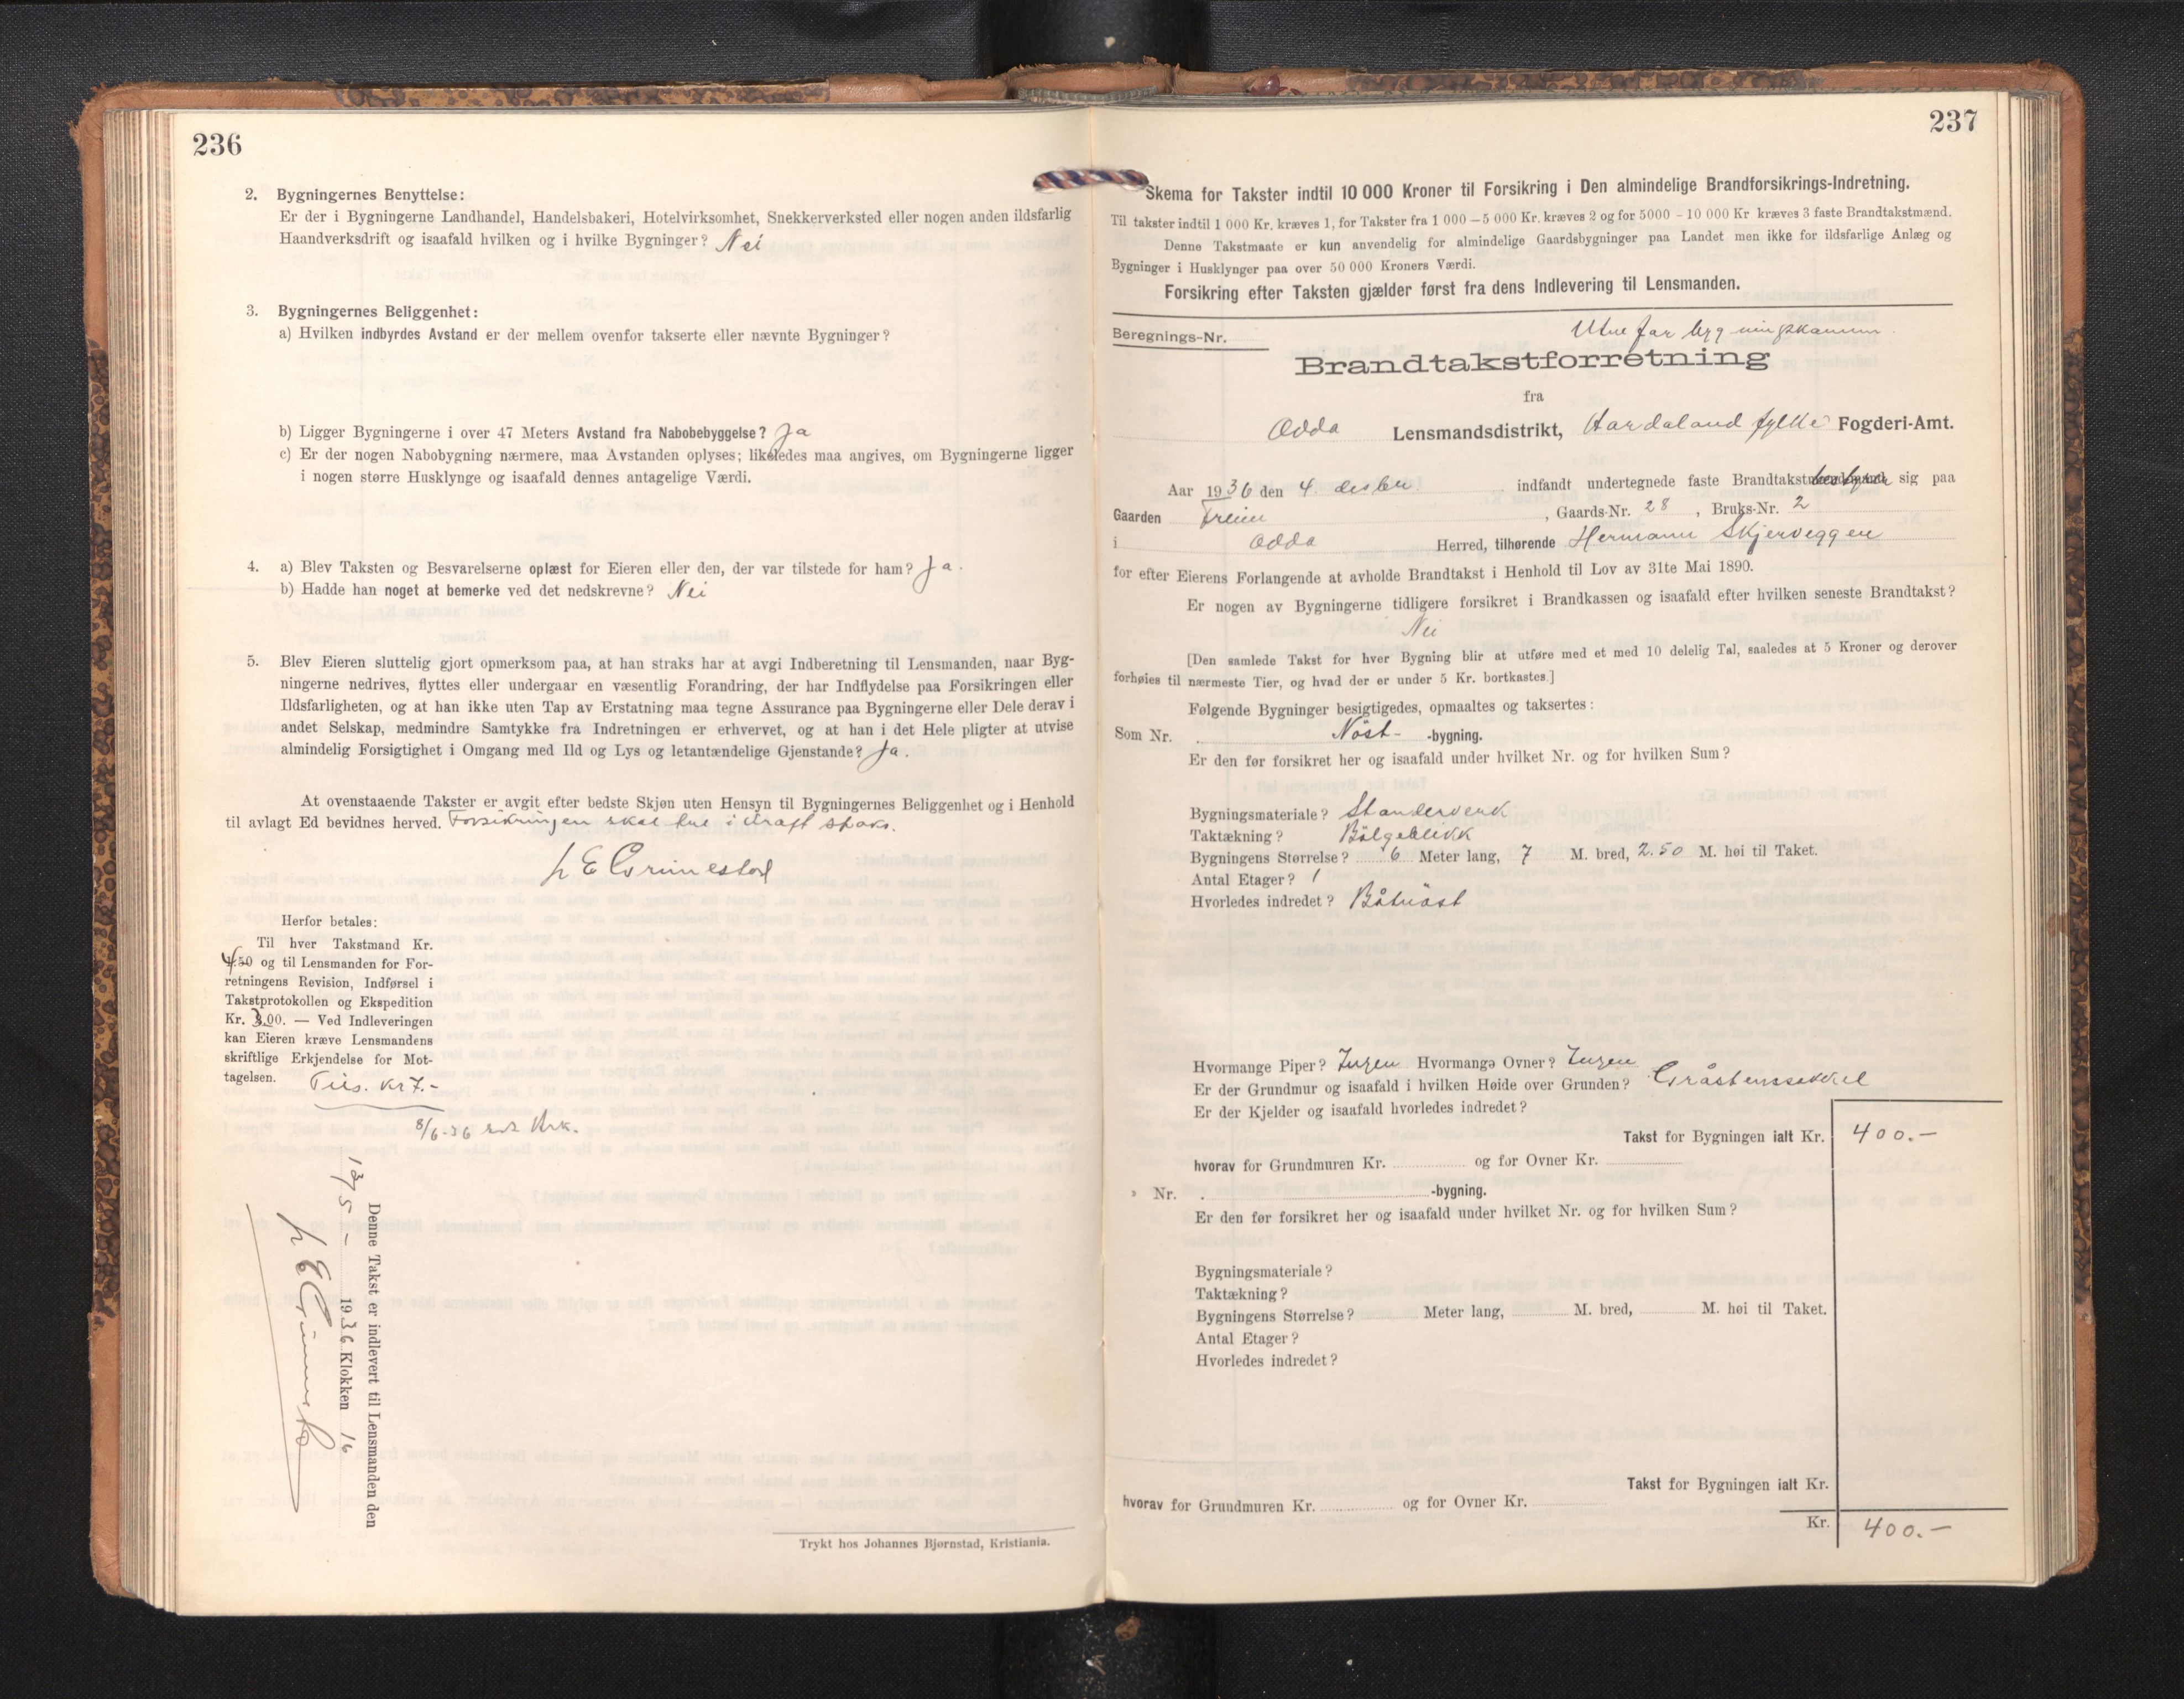 236
2. Bygningernes Benyttelse:
Er der i Bygningerne Landhandel, Handelsbakeri, Hotelvirksomhet, Snekkerverksted eller nogen anden ildsfarlig
Haandverksdrift og isaafald hvilken og i hvilke Bygninger? Nei
3. Bygningernes Beliggenhet:
a) Hvilken indbyrdes Avstand er der mellem ovenfor takserte eller nævnte Bygninger?
b) Ligger Bygningerne i over 47 Meters Avstand fra Nabobebyggelse? Ja
c) Er der nogen Nabobygning nærmere, maa Avstanden oplyses; likeledes maa angives, om Bygningerne ligger
i nogen større Husklynge og isaafald dennes antagelige Værdi.
4. a) Blev Taksten og Besvarelserne oplæst for Eieren eller den, der var tilstede for ham? Ja.
b) Hadde han noget at bemerke ved det nedskrevne? Nei
5. Blev Eieren sluttelig gjort opmerksom paa, at han straks har at avgi Indberetning til Lensmanden, naar Byg-
ningerne nedrives, flyttes eller undergaar en væsentlig Forandring, der har Indflydelse paa Forsikringen eller
Ildsfarligheten, og at han ikke uten Tap av Erstatning maa tegne Assurance paa Bygningerne eller Dele derav i
andet Selskap, medmindre Samtykke fra Indretningen er erhvervet, og at han i det Hele pligter at utvise
almindelig Forsigtighet i Omgang med Ild og Lys og letantændelige Gjenstande? Ja.
At ovenstaaende Takster er avgit efter bedste Skjøn uten Hensyn til Bygningernes Beliggenhet og i Henhold
til avlagt Ed bevidnes herved. Forsikringen skal tre i kraft straks.
L E Grimestad
Herfor betales:
Til hver Takstmand Kr.
4.50 og til Lensmanden for For-
retningens Revision, Indførsel i
Takstprotokollen og Ekspedition
Kr. 3.00. — Ved Indleveringen
kan Eieren kræve Lensmandens
skriftlige Erkjendelse for Mot-
tagelsen. Tils. kr 7.-
8/6-36
Denne Takst er indlevert til Lensmanden den
13/5 - 1936 Klokken 16
L E Grimestad
Trykt hos Johannes Bjørnstad, Kristiania.
237
Skema for Takster indtil 10 000 Kroner til Forsikring i Den almindelige Brandforsikrings-Indretning.
Til takster indtil 1 000 Kr. kræves 1, for Takster fra 1 000 – 5 000 Kr. kræves 2 og for 5000 – 10 000 Kr kræves 3 faste Brandtakstmænd.
Denne Takstmaate er kun anvendelig for almindelige Gaardsbygninger paa Landet men ikke for ildsfarlige Anlæg og
Bygninger i Husklynger paa over 50 000 Kroners Værdi.
Forsikring efter Taksten gjælder først fra dens Indlevering til Lensmanden.
Utnefor bygningskomm.
Beregnings-Nr.
Brandtakstforretning
fra
Odda Lensmandsdistrikt, Hordaland fylke Fogderi-Amt.
Aar 1936 den 4. desbr. indfandt undertegnede faste Brandtakstmænd sig paa
Gaarden Freim, Gaards-Nr. 28, Bruks-Nr. 2
i Odda Herred, tilhørende Hermann Skjerveggen
for efter Eierens Forlangende at avholde Brandtakst i Henhold til Lov av 31te Mai 1890.
Er nogen av Bygningerne tidligere forsikret i Brandkassen og isaafald efter hvilken seneste Brandtakst?
Nei
[Den samlede Takst for hver Bygning blir at utføre med et med 10 delelig Tal, saaledes at 5 Kroner og derover
forhøies til nærmeste Tier, og hvad der er under 5 Kr. bortkastes.]
Følgende Bygninger besigtigedes, opmaaltes og taksertes:
Som Nr. Nöst- -bygning.
Er den før forsikret her og isaafald under hvilket Nr. og for hvilken Sum?
Bygningsmateriale? Standerverk
Taktækning? Bölgeblikk
Bygningens Størrelse? 6 Meter lang, 7 M. bred, 2.50 M. høi til Taket.
Antal Etager? 1
Hvorledes indredet? Båtnöst
Hvormange Piper? Ingen Hvormange Ovner? Ingen
Er der Grundmur og isaafald i hvilken Høide over Grunden? Gråstenssokkel
Er der Kjelder og isaafald hvorledes indredet?
Takst for Bygningen ialt Kr. 400.-
hvorav for Grundmuren Kr. og for Ovner Kr.
» Nr. -bygning.
Er den før forsikret her og isaafald under hvilket Nr. og for hvilken Sum?
Bygningsmateriale?
Taktækning?
Bygningens Størrelse? Meter lang, M. bred, M. høi til Taket.
Antal Etager?
Hvorledes indredet?
Takst for Bygningen ialt Kr.
hvorav for Grundmuren Kr. og for Ovner Kr.
Kr. 400.-